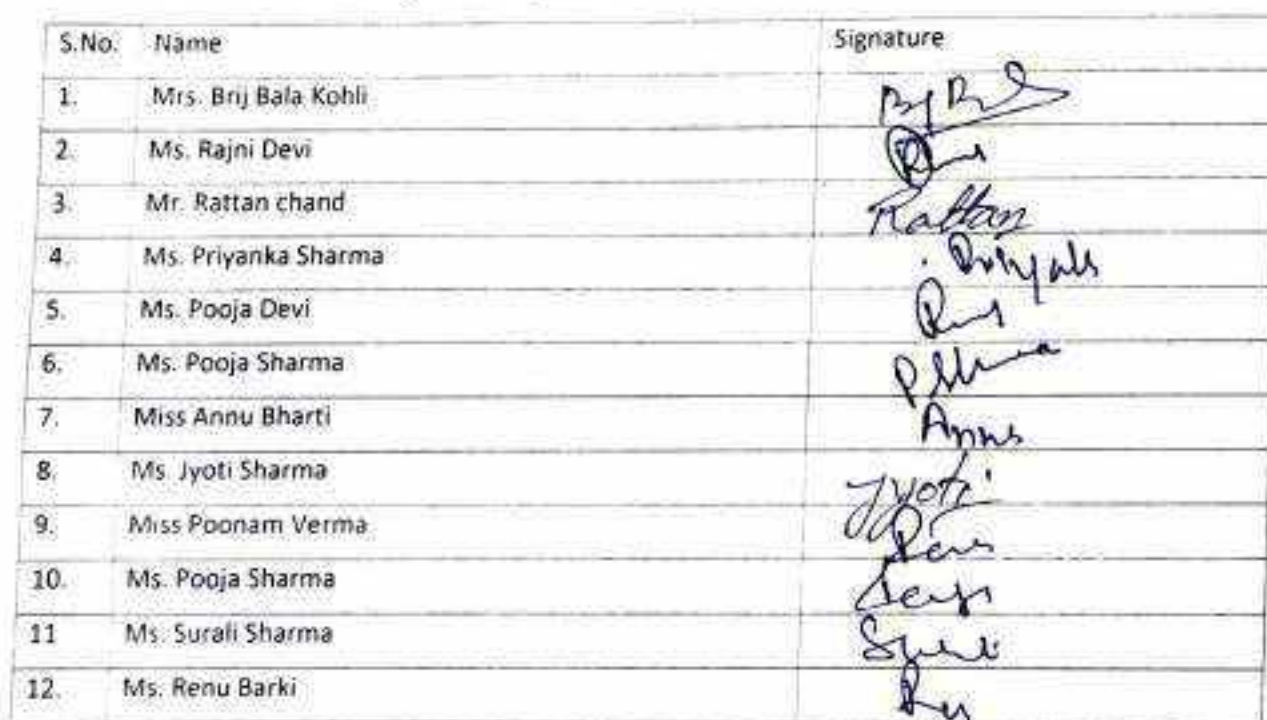 S.No. Name Signature
1. Mrs. Brij Bala Kohli
2. Ms. Rajni Devi
3. Mr. Rattan chand Rattan
4. Ms. Priyanka Sharma
5. Ms. Pooja Devi
6. Ms. Pooja Sharma
7. Miss Annu Bharti
8. Ms. Jyoti Sharma Jyoti
9. Miss Poonam Verma
10. Ms. Pooja Sharma
11 Ms. Surali Sharma
12. Ms. Renu Barki